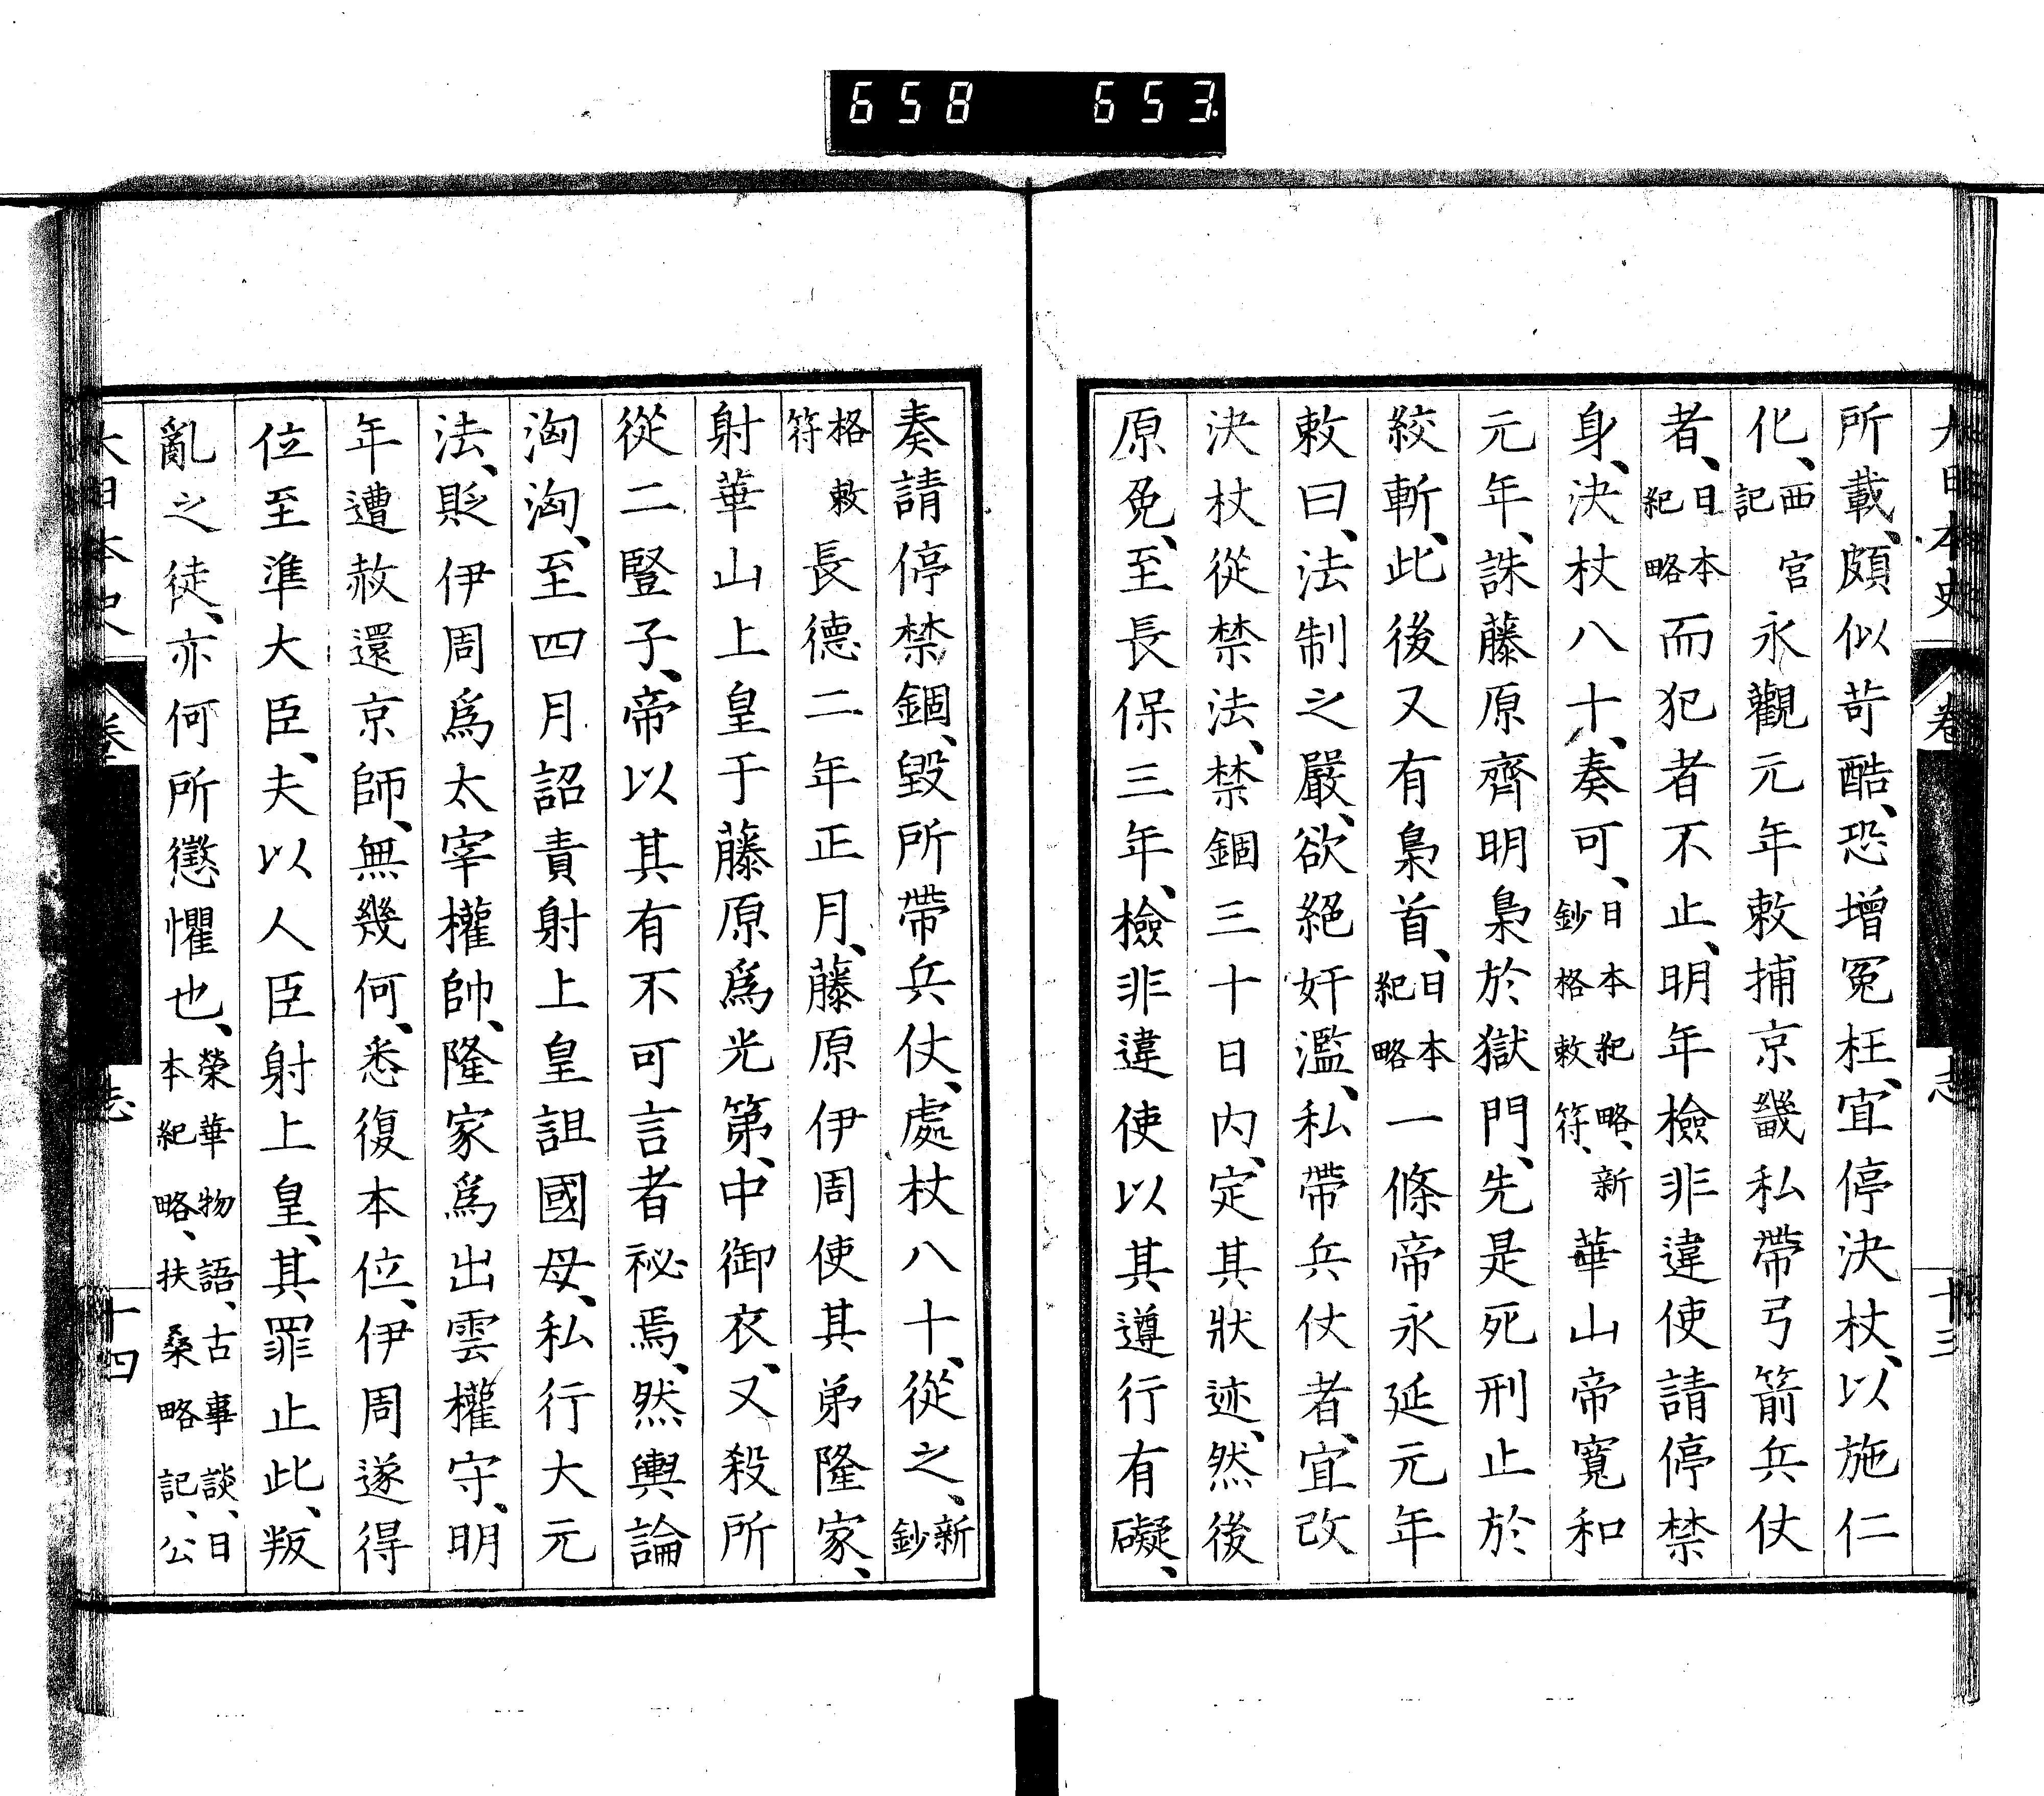 658 653
大日本史 卷 志 十三
所載、頗似苛酷、恐增冤枉、宜停決杖、以施仁
化、西宮記永觀元年敕捕京畿私帶弓箭兵仗
者、日本紀略而犯者不止、明年檢非違使請停禁
身、決杖八十、奏可、日本紀略、新鈔格敕符、華山帝寬和
元年、誅藤原齊明梟於獄門、先是死刑止於
絞斬、此後又有梟首、日本紀略一條帝永延元年
敕曰、法制之嚴、欲絕奸濫、私帶兵仗者、宜改
決杖從禁法、禁錮三十日內、定其狀迹、然後
原免、至長保三年、檢非違使以其遵行有礙、
奏請停禁錮、毀所帶兵仗、處杖八十、從之、新鈔
格敕符長德二年正月、藤原伊周使其弟隆家、
射華山上皇于藤原爲光第、中御衣、又殺所
從二豎子、帝以其有不可言者祕焉、然輿論
洶洶、至四月詔責射上皇詛國母、私行大元
法、貶伊周爲太宰權帥、隆家爲出雲權守、明
年遭赦還京師、無幾何、悉復本位、伊周遂得
位至準大臣、夫以人臣射上皇、其罪止此、叛
亂之徒、亦何所懲懼也、榮華物語、古事談、日本紀略、扶桑略記、公
大日本史 卷 志 十四